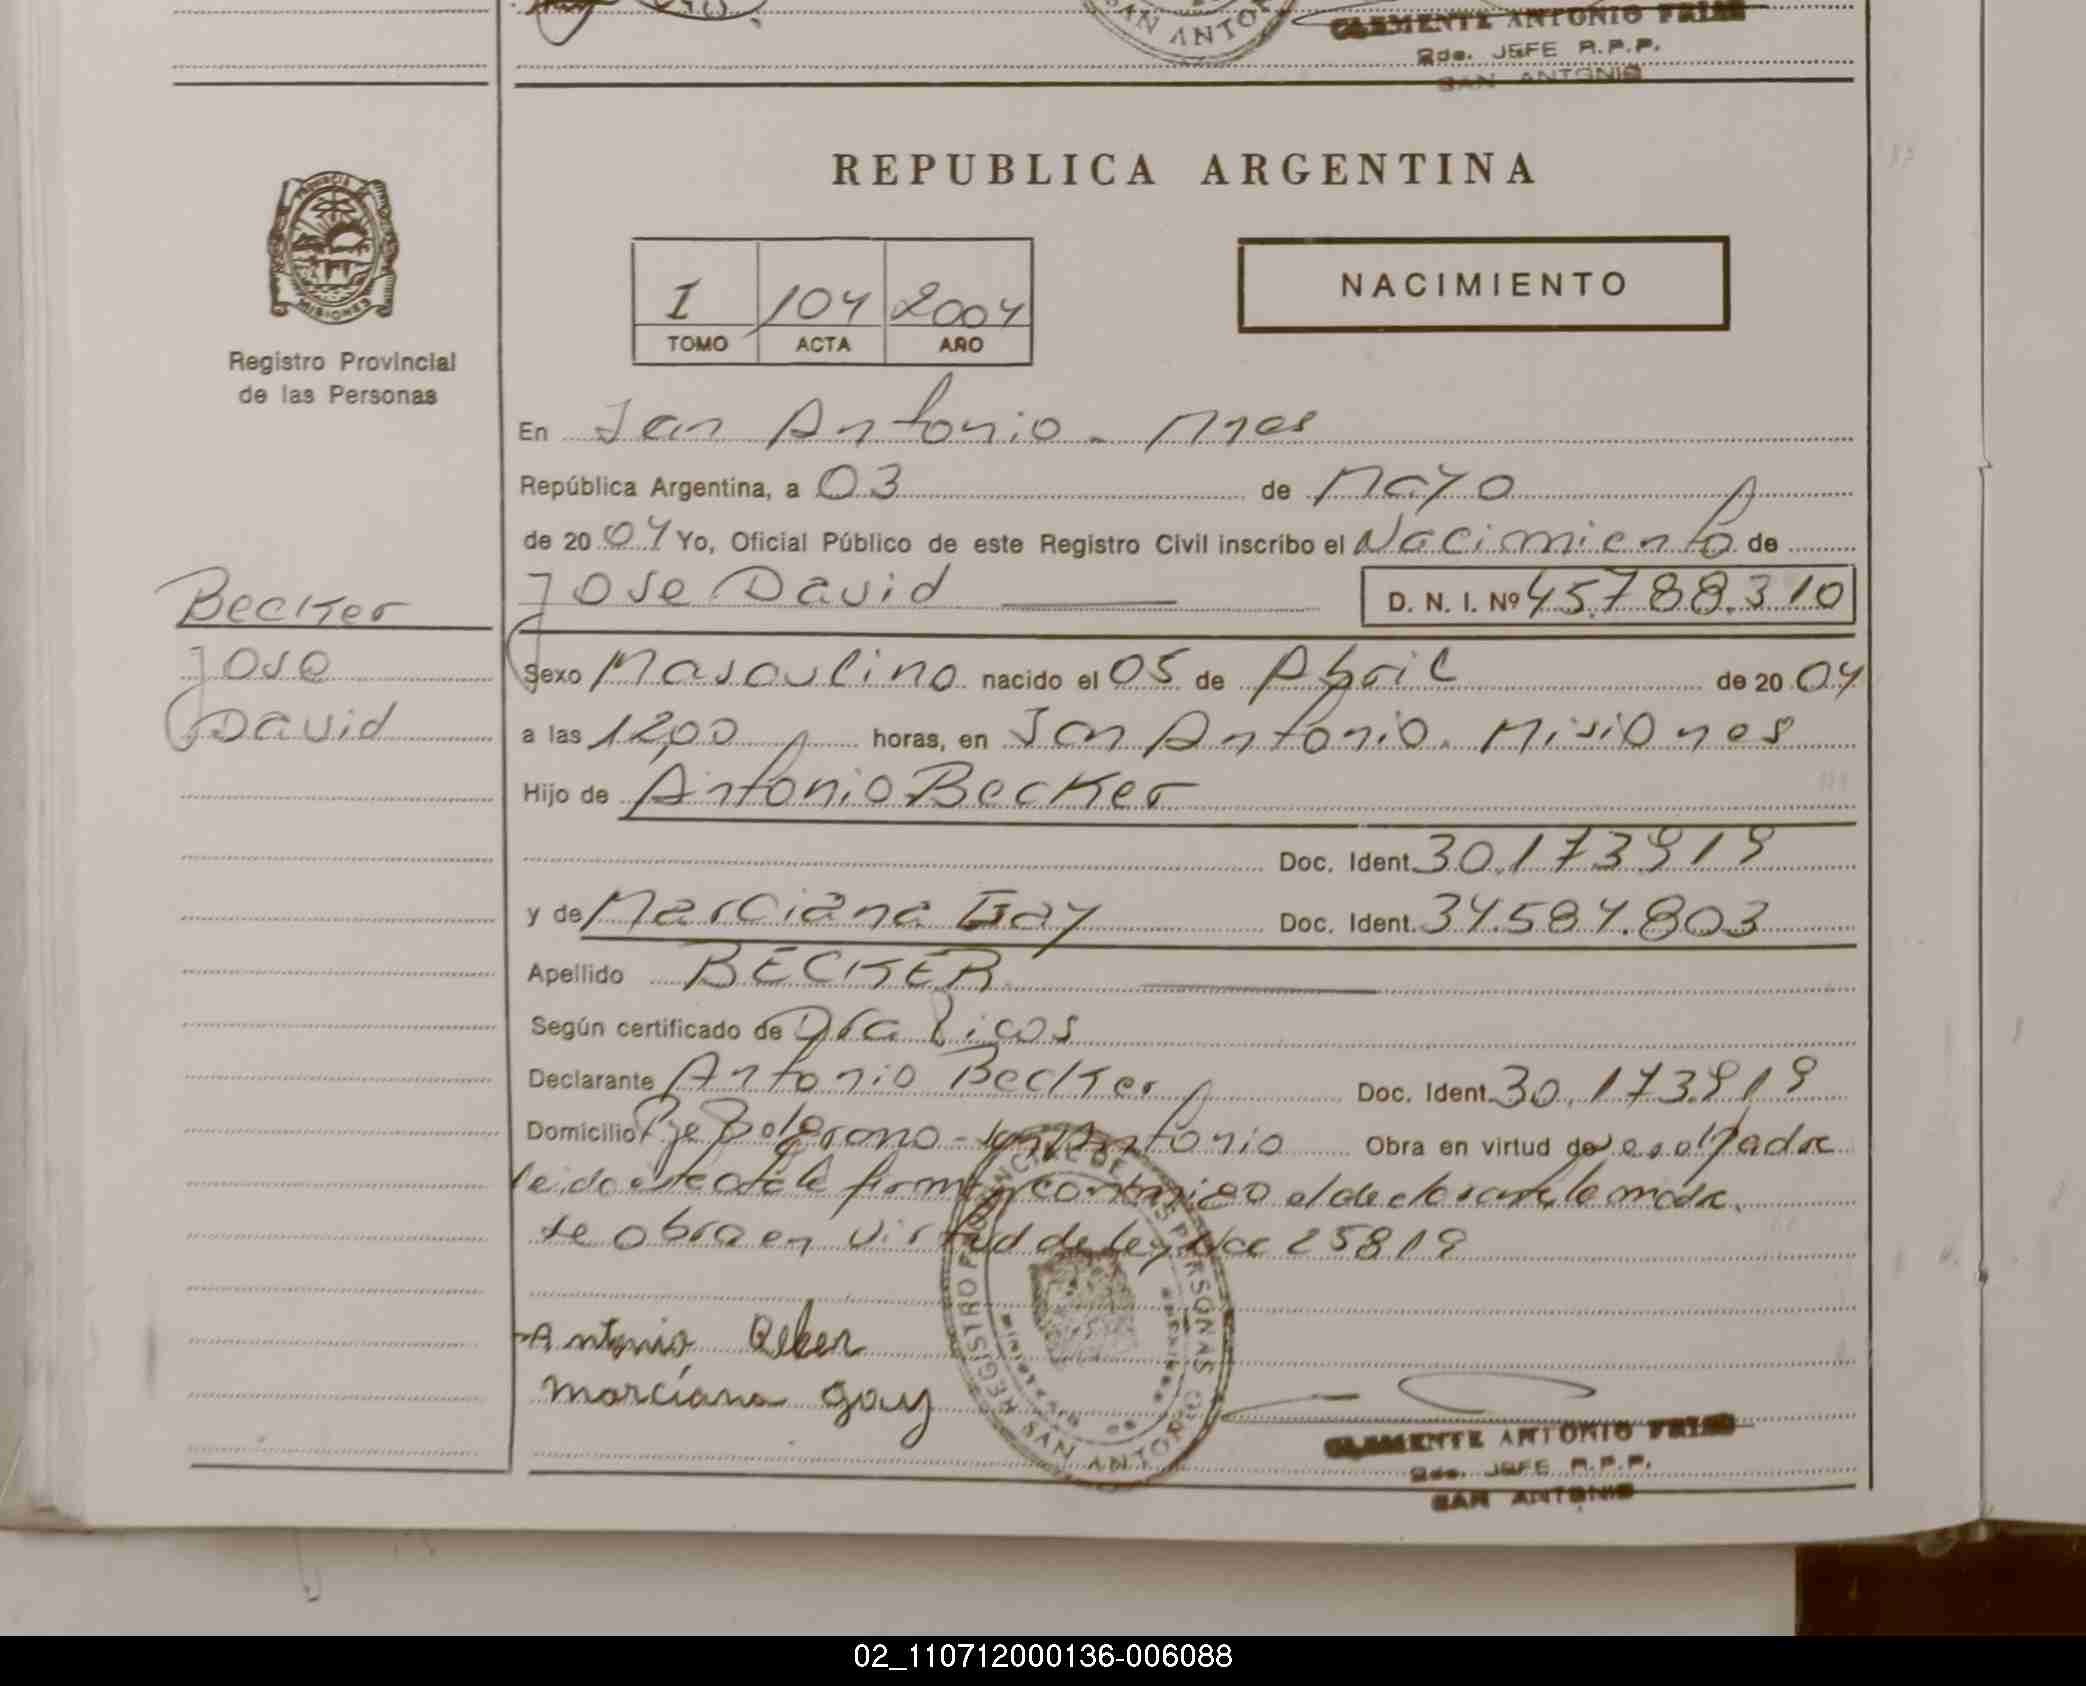 SAN ANTON
CLEMENTE ANTONIO
2do. JEFE R.P.P.
SAN ANTONIO
REPUBLICA ARGENTINA
PROVINCIA DE
MISIONES
Registro Provincial
de las Personas
I 104 2004
TOMO ACTA AÑO
NACIMIENTO
En San Antonio - Mnes
República Argentina, a 03 de Mayo
de 20 04 Yo, Oficial Público de este Registro Civil inscribo el Nacimiento de
Jose David D. N. I. Nº 45.788.310
Becker
Jose
David
Sexo Masculino nacido el 05 de Abril de 20 04
a las 12,00 horas, en San Antonio. Misiones
Hijo de Antonio Becker
Doc. Ident. 30.173919
y de Marciana Gay Doc. Ident. 34.584.803
Apellido BECKER
Según certificado de Dra
Declarante Antonio Becker Doc. Ident. 30.173.919
Domicilio Pje Belgrano - San Antonio Obra en virtud de
firman conmigo el declarante la madre
se obra en virtud de ley Nac 25819
REGISTRO PROVINCIAL DE LAS PERSONAS
SAN ANTONIO
Antonio Beker
Marciana gay
CLEMENTE ANTONIO
2do. JEFE R.P.P.
SAN ANTONIO
02_110712000136-006088